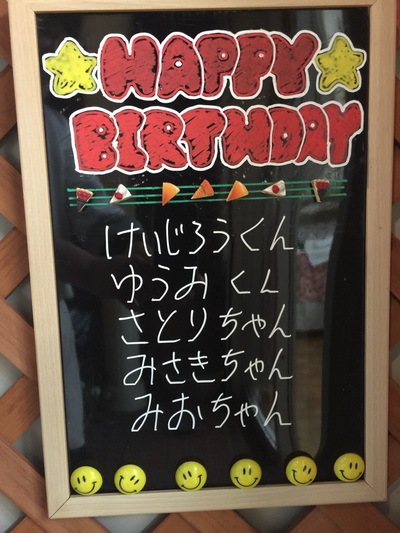 HAPPY
BIRTHDAY
けいじろうくん
ゆうみくん
さとりちゃん
みさきちゃん
みおちゃん